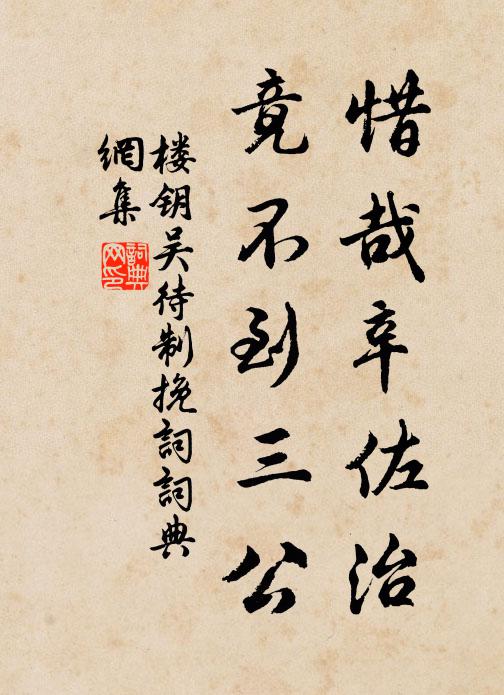 惜哉辛佐治
竟不到三公
楼钥吴待制挽词词典
網集
詞典
网印